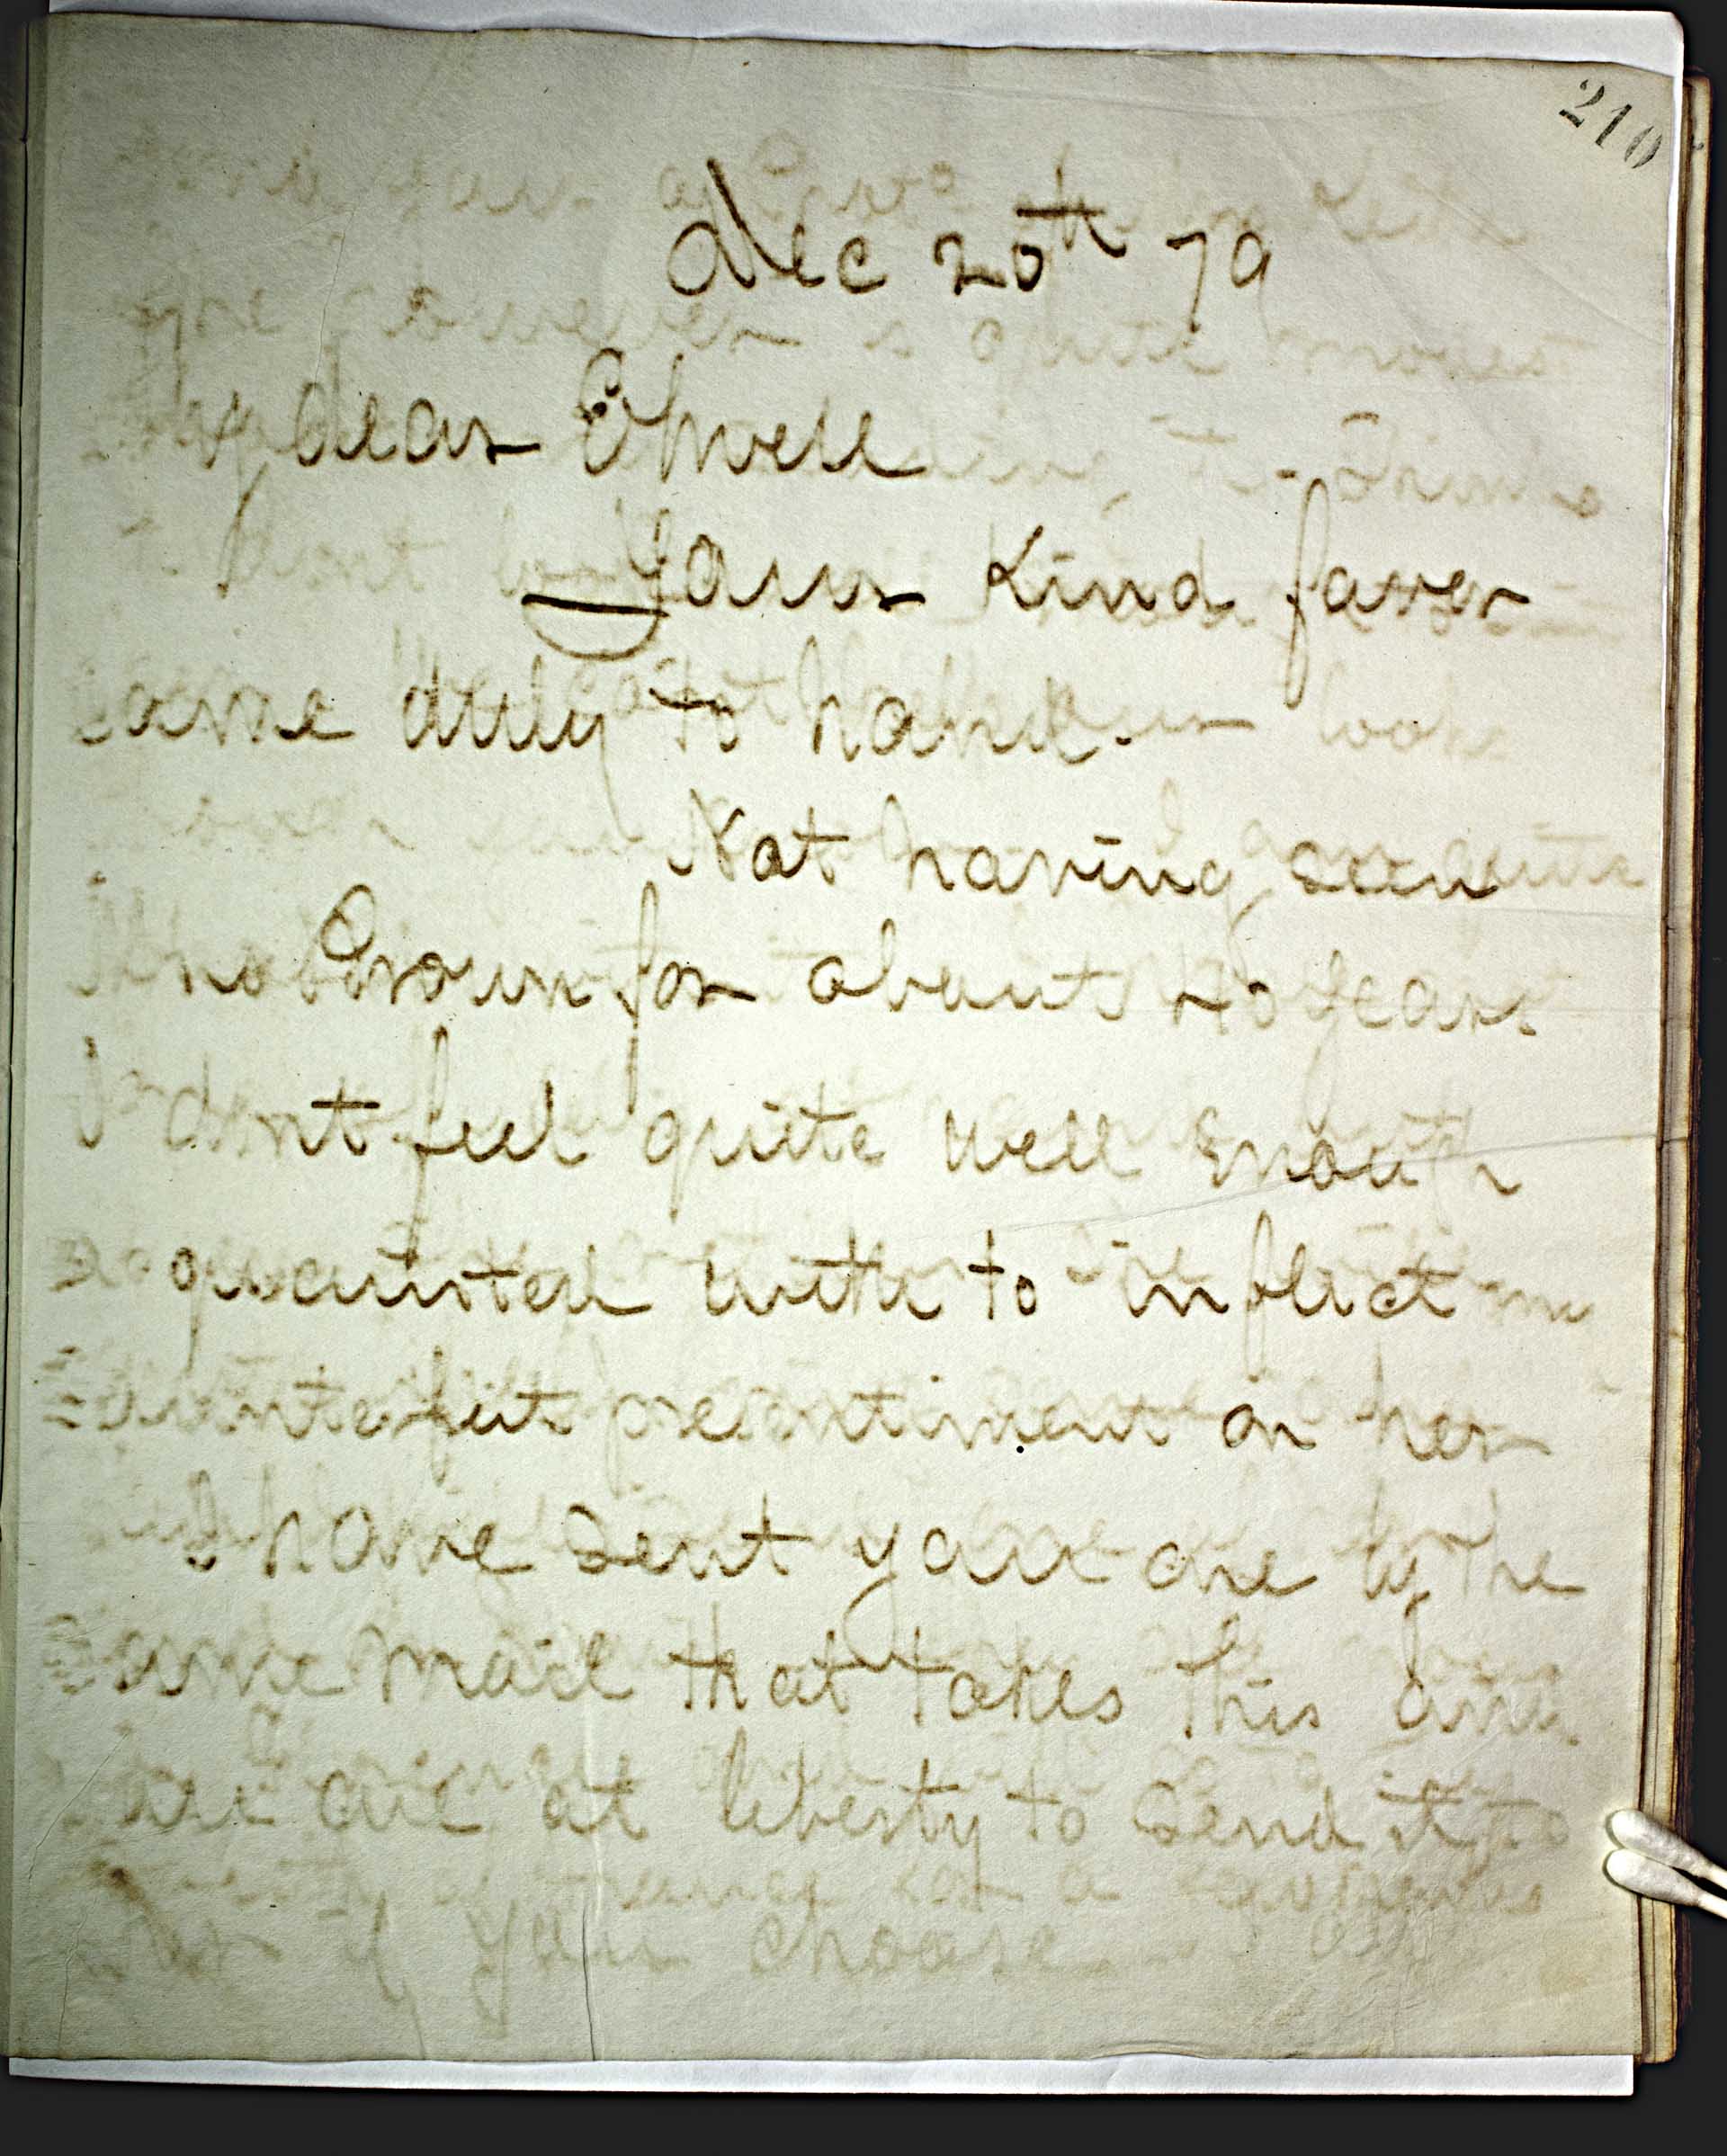 210
Dec 20th 79
My dear Othwell
Your Kind faver
came duly to hand.
Not having seen
Brown for about 20 years
I dont feel quite well enough
aquainted with to inflict
counterfeit presentiment on her
I have sent you one by the
same mail that takes this and
you are at liberty to send it to
if you choose